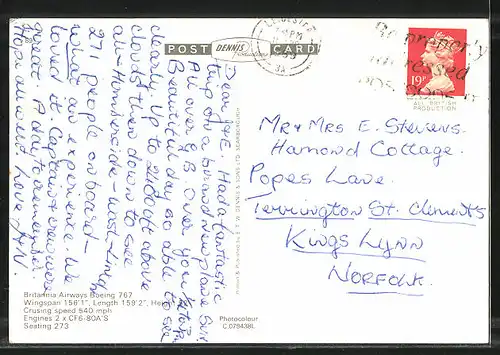 POST DENNIS CARD
LEICESTER
PM
Be properly
addressed
POSTCODE IT
19P
ALL BRITISH
PRODUCTION
Dear J+E. Had a fantastic
trip on a brand new plane
All over G.B. over you
Beautiful day so able to see
clearly. Up to 24000ft above
clouds then down to see
all - Humberside - Coast - Lincs
271 people on board -
What an experience. We
loved it. Captain + crew were
great. A day to remember
Hope all well. Love
Mr & Mrs E. Stevens.
Hamond Cottage.
Popes Lane.
Terrington St. Clements
Kings Lynn
NORFOLK.
Britannia Airways Boeing 767
Wingspan 156'1", Length 159'2",
Crusing speed 540 mph
Engines 2 x CF6-80A'S
Seating 273
Photocolour
C.07943BL